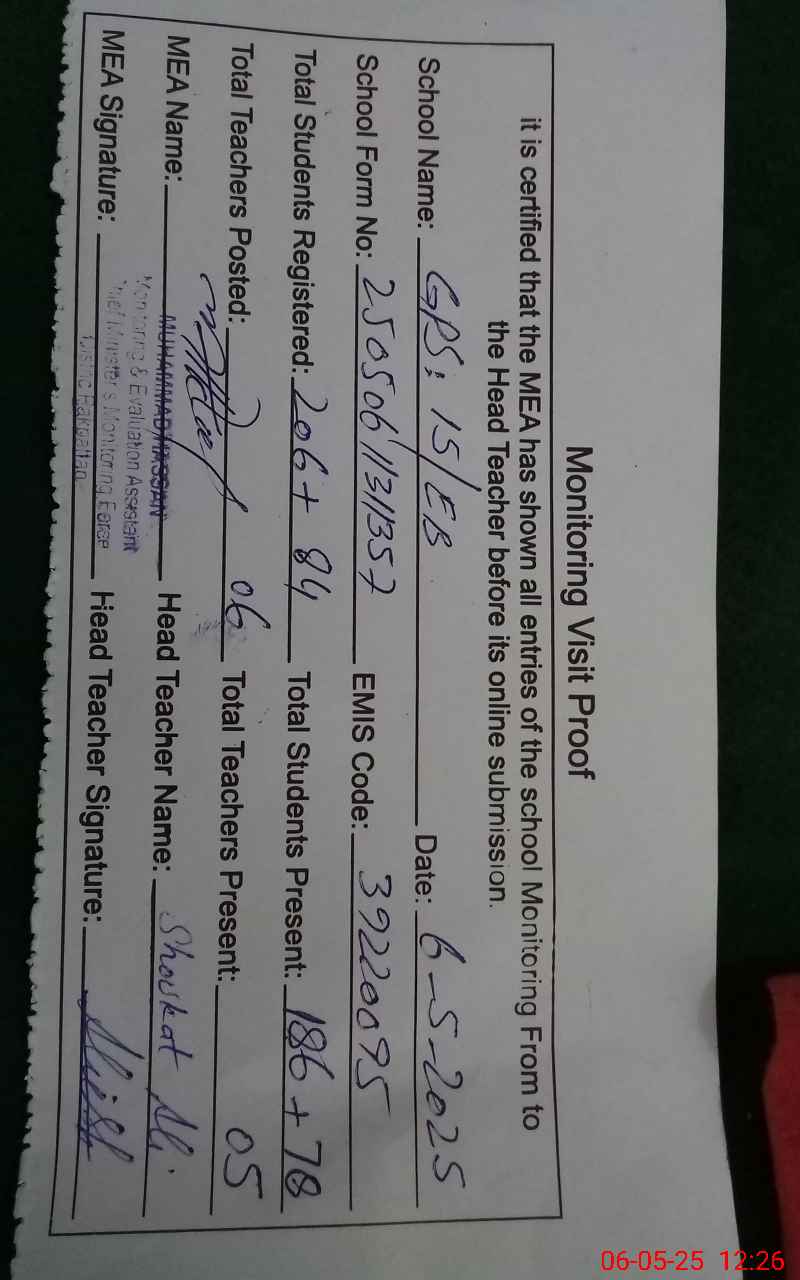 Monitoring Visit Proof
it is certified that the MEA has shown all entries of the school Monitoring From to
the Head Teacher before its online submission.
School Name: GPS: 15/EB Date: 6-5-2025
School Form No: 25050611311357 EMIS Code: 39220095
Total Students Registered: 206 + 84 Total Students Present: 186 + 78
Total Teachers Posted: 06 Total Teachers Present: 05
MEA Name: MUHAMMAD HASSAN Head Teacher Name: Shoukat Ali
Monitoring & Evaluation Assistant
Chief Minister's Monitoring Force
District Pakpattan
MEA Signature: Head Teacher Signature:
06-05-25 12:26